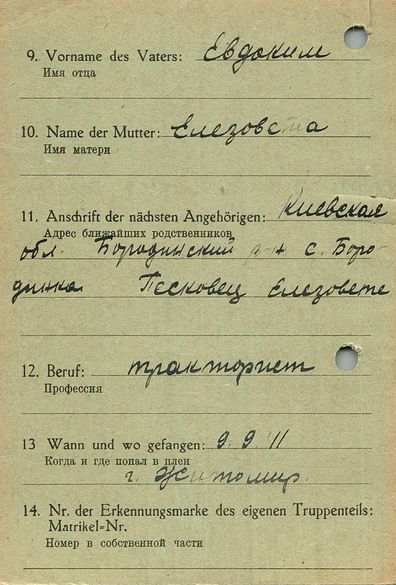 9. Vorname des Vaters: Евдоким
Имя отца
10. Name der Mutter: Елезовета
Имя матери
11. Anschrift der nächsten Angehörigen: Киевская
Адрес ближайших родственников
обл. Бородинский р-н с. Боро-
динка Песковец Елезовете
12. Beruf: тракторист
Профессия
13 Wann und wo gefangen: 9. 9. 41
Когда и где попал в плен
г. Житомир.
14. Nr. der Erkennungsmarke des eigenen Truppenteils:
Matrikel-Nr.
Номер в собственной части